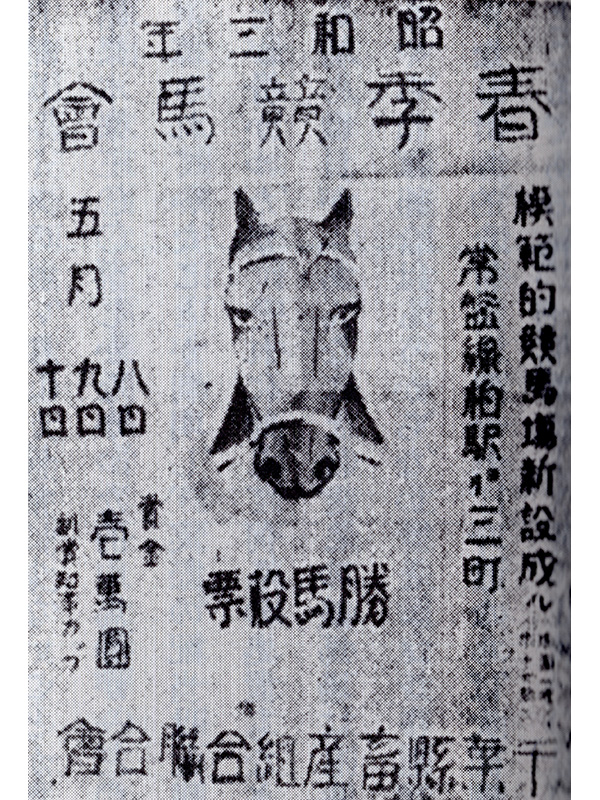 昭和三年
春季競馬會
模範的競馬場新設成ル
常磐線柏駅ヨリ三町
五月
八日
九日
十日
賞金
壱萬圓
副賞
勝馬投票
千葉縣畜産組合聯合會